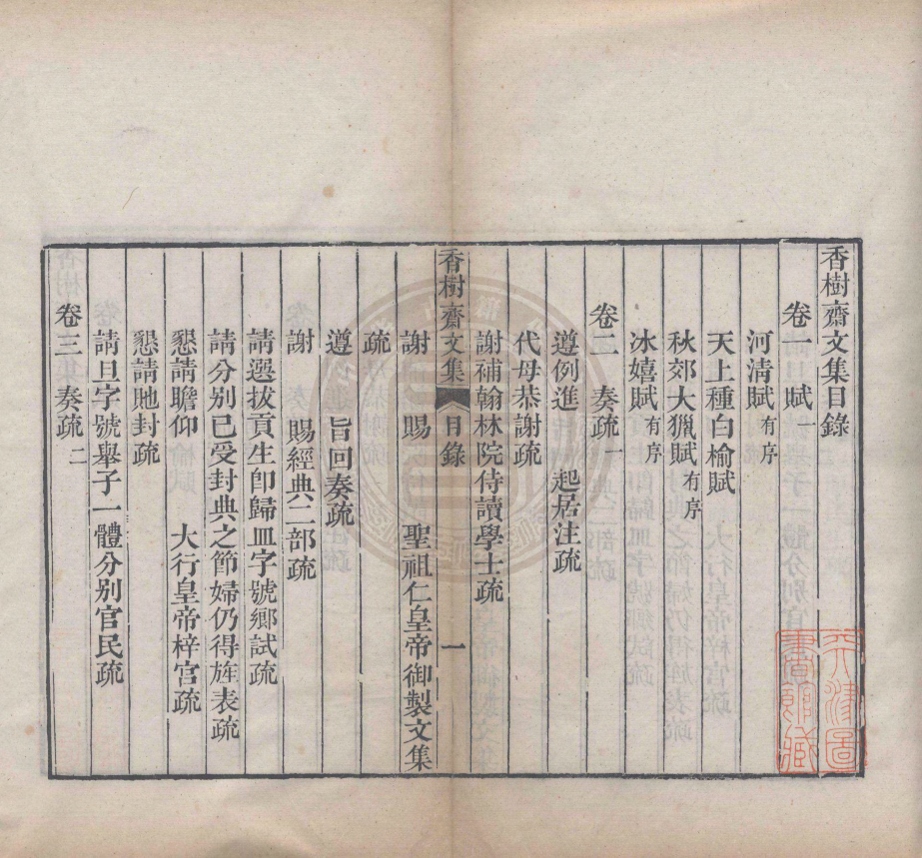 香樹齋文集目錄
卷一　賦一
河清賦有序
天上種白榆賦
秋郊大獵賦有序
冰嬉賦有序
卷二　奏疏一
遵例進　起居注疏
代母恭謝疏
謝補翰林院侍讀學士疏
香樹齋文集　目錄　一
謝　賜　聖祖仁皇帝御製文集
疏
遵　旨回奏疏
謝　賜經典二部疏
請選拔貢生卽歸皿字號鄉試疏
請分別已受封典之節婦仍得旌表疏
懇請瞻仰　大行皇帝梓宮疏
懇請貤封疏
請旦字號舉子一體分別官民疏
卷三　奏疏二
天津圖
書館藏